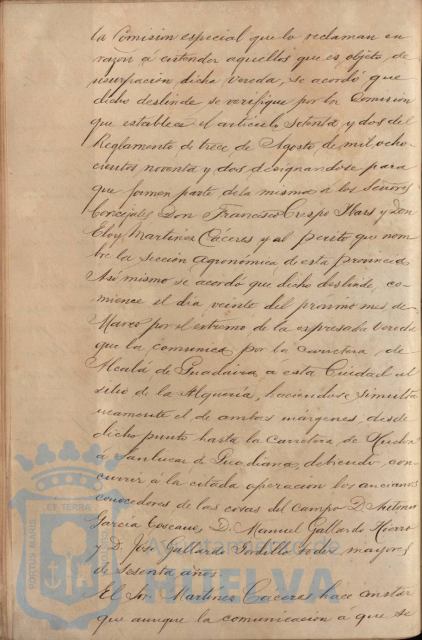 la Comision especial que lo reclaman en
razon á entender aquellos que es objeto de
usurpación dicha vereda, se acordó que
dicho deslinde se verifique por la Comision
que establece el artículo setenta y dos del
Reglamento de trece de Agosto de mil ocho-
cientos noventa y dos designandose para
que formen parte de la misma á los Señores
Concejales Don Francisco Crespo y Don
Eloy Martinez Cáceres y al perito que nom-
bre la Sección Agronómica de esta provincia
Asi mismo se acordó que dicho deslinde, co-
mience el dia veinte del próximo mes de
Marzo por el extremo de la expresada vereda
que la comunica por la carretera, de
Alcalá de Guadaira a esta Ciudad al
sitio de la Alquería, haciendose simulta
neamente el de ambas márgenes, desde
dicho punto hasta la Carretera de
á Sanlucar de Guadiana, debiendo con-
currir á la citada operación los ancianos
conocedores de las cosas del campo D. Antonio
Garcia Toscano, D. Manuel Gallardo
y D. José Gallardo todos mayores
de sesenta años.
El Sr. Martinez Caceres hace constar
que aunque la comunicación á que se
PORTUS MARIS
ET TERRÆ
Ayuntamiento de
HUELVA